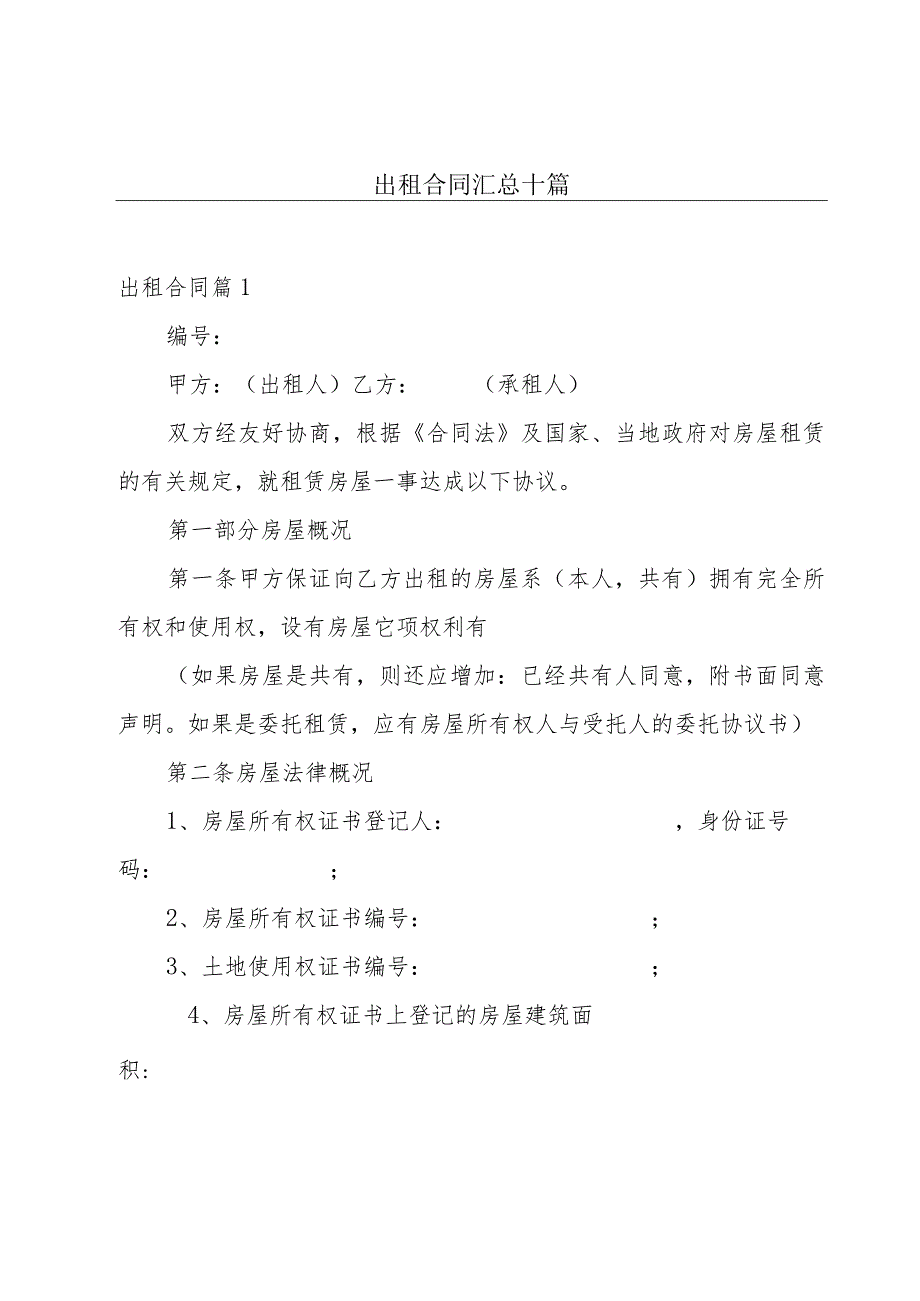 出租合同汇总十篇
出租合同篇1
编号：
甲方：（出租人）乙方： （承租人）
双方经友好协商，根据《合同法》及国家、当地政府对房屋租赁
的有关规定，就租赁房屋一事达成以下协议。
第一部分房屋概况
第一条甲方保证向乙方出租的房屋系（本人，共有）拥有完全所
有权和使用权，设有房屋它项权利有
（如果房屋是共有，则还应增加：已经共有人同意，附书面同意
声明。如果是委托租赁，应有房屋所有权人与受托人的委托协议书）
第二条房屋法律概况
1、房屋所有权证书登记人： ，身份证号
码： ；
2、房屋所有权证书编号： ；
3、土地使用权证书编号： ；
4、房屋所有权证书上登记的房屋建筑面
积：